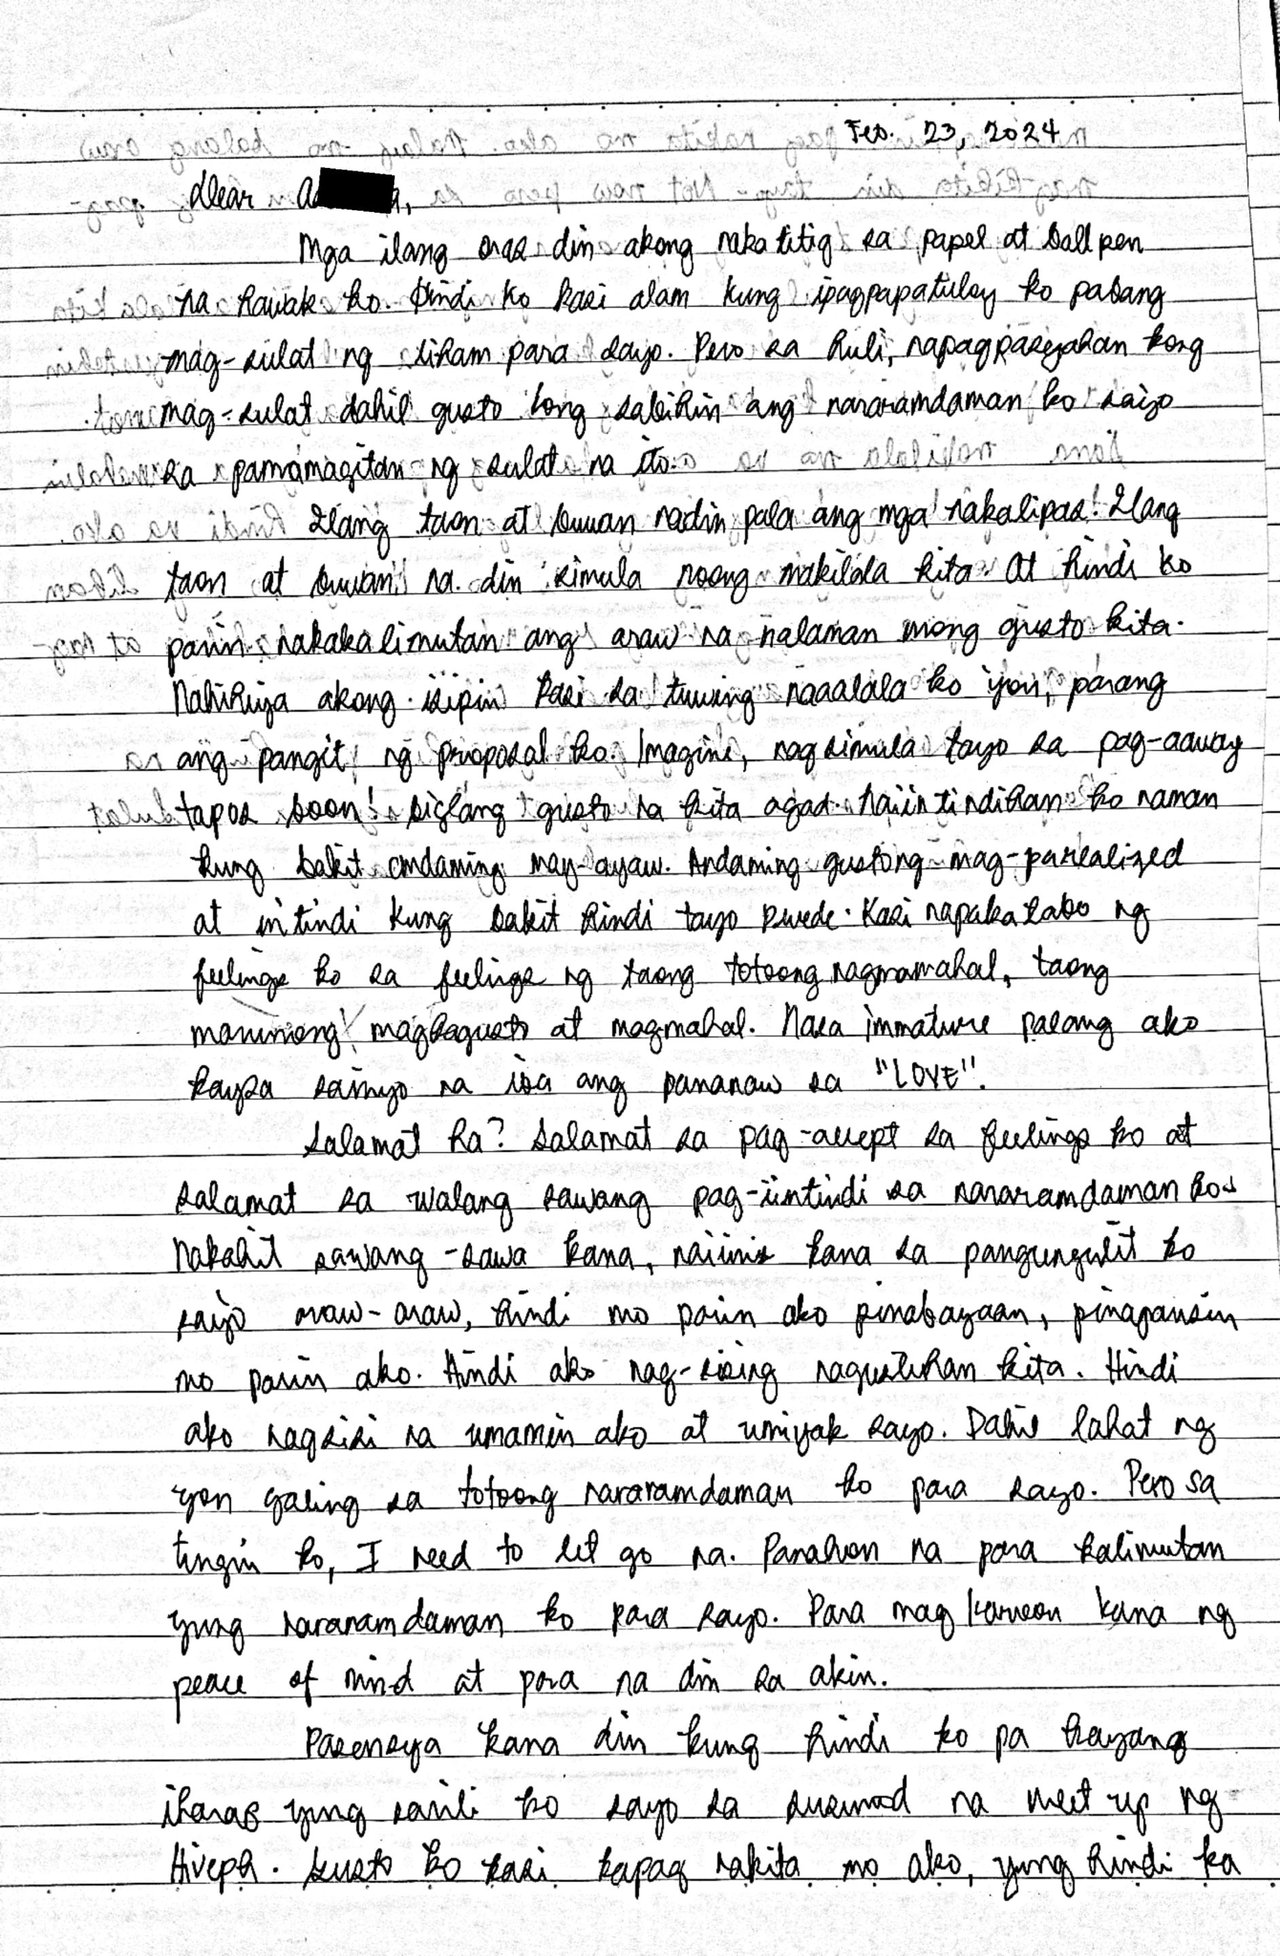 Feb. 23, 2024
Dear A
Mga ilang oras din akong nakatitig sa papel at ballpen
na hawak ko. Hindi ko kasi alam kung ipagpapatuloy ko pabang
mag-sulat ng liham para sayo. Pero sa huli, napagpasyahan kong
mag-sulat dahil gusto kong sabihin ang nararamdaman ko saiyo
sa pamamagitan ng sulat na ito.
Ilang taon at buwan nadin pala ang mga nakalipas! Ilang
taon at buwan na din simula noong makilala kita. At hindi ko
parin nakakalimutan ang araw na nalaman mong gusto kita.
Nahihiya akong isipin kasi sa tuwing naaalala ko iyon, parang
ang pangit ng proposal ko. Imagine, nagsimula tayo sa pag-aaway
tapos boom! biglang gusto na kita agad. Naiintindihan ko naman
kung bakit andaming may-ayaw. Andaming gustong mag-parealized
at intindi kung bakit hindi tayo pwede. Kasi napakalabo ng
feelings ko sa feelings ng taong totoong nagmamahal, taong
marunong magkagusto at magmahal. Nasa immature palang ako
kaysa sainyo na iba ang pananaw sa "LOVE".
Salamat ha? Salamat sa pag-accept sa feelings ko at
salamat sa walang sawang pag-iintindi sa nararamdaman ko.
Nakahit sawang-sawa kana, naiinis kana sa pangungulit ko
saiyo araw-araw, hindi mo parin ako pinabayaan, pinapansin
mo parin ako. Hindi ako nag-sising nagustuhan kita. Hindi
ako nagsisi na umamin ako at umiyak sayo. Dahil lahat ng
yon galing sa totoong nararamdaman ko para sayo. Pero sa
tingin ko, I need to let go na. Panahon na para kalimutan
yung nararamdaman ko para sayo. Para magkaroon kana ng
peace of mind at para na din sa akin.
Pasensya kana din kung hindi ko pa kayang
iharap yung sarili ko sayo sa susunod na meet up ng
Hiveph. Gusto ko kasi kapag nakita mo ako, yung hindi ka